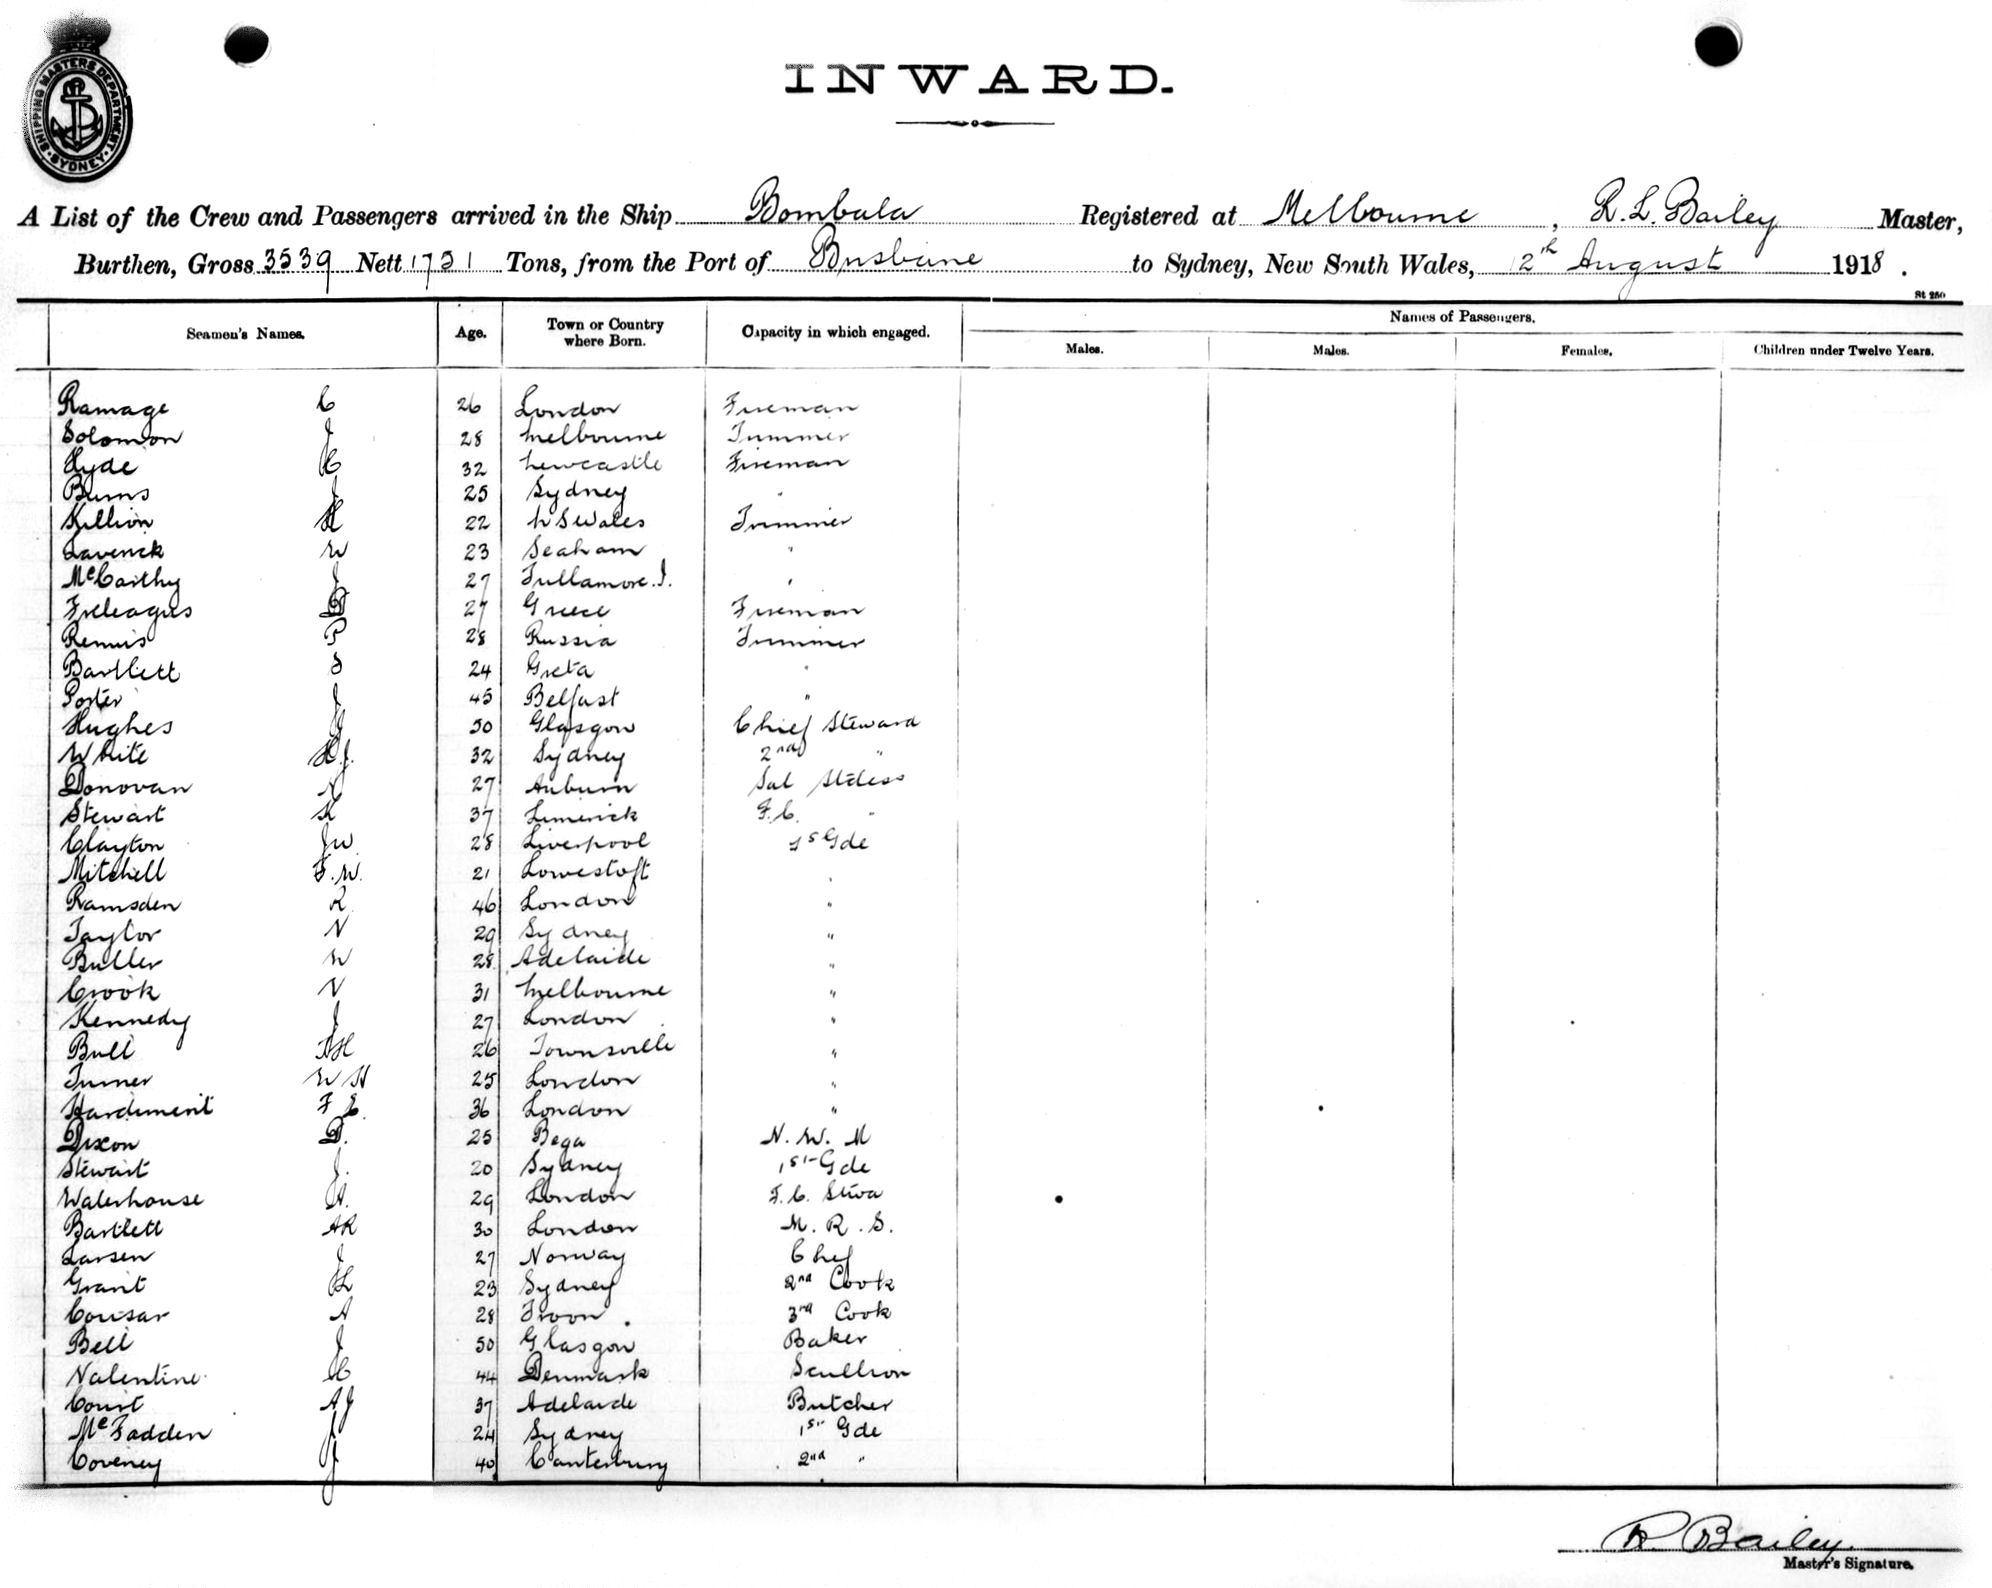 SHIPPING MASTERS DEPARTMENT
SYDNEY
INWARD.
A List of the Crew and Passengers arrived in the Ship Bombala Registered at Melbourne, R. L. Bailey Master,
Burthen, Gross 3539 Nett 1731 Tons, from the Port of Brisbane to Sydney, New South Wales, 12th August 1918.
St 250
Seamen's Names. Age. Town or Country where Born. Capacity in which engaged. Names of Passengers.
Males. Males. Females. Children under Twelve Years.
Ramage C 26 London Fireman
Solomon J 28 Melbourne Trimmer
Hyde C 32 Newcastle Fireman
Burns J 25 Sydney "
Killion H 22 N S Wales Trimmer
Laverick W 23 Seaham "
McCarthy J 27 Tullamore. I. "
Freleagus 27 Greece Fireman
Remus P 28 Russia Trimmer
Bartlett S 24 Greta "
Porter J 45 Belfast "
Hughes J 50 Glasgow Chief Steward
White H.J. 32 Sydney 2nd "
Donovan A 27 Auburn Sal Stdess
Stewart K 37 Limerick F.C. "
Clayton J W 28 Liverpool 1s Gde
Mitchell F. W. 21 Lowestoft "
Ramsden R 46 London "
Taylor N 29 Sydney "
Butler W 28 Adelaide "
Crook V 31 Melbourne "
Kennedy J 27 London "
Bull A H 26 Townsville "
Turner W H 25 London "
Hardiment F E 36 London "
Dixon D. 25 Bega N. W. M
Stewart J. 20 Sydney 1st Gde
Waterhouse H. 29 London F. C. Stwd
Bartlett A R 30 London M. R. S.
Larsen J 27 Norway Chef
Grant H 23 Sydney 2nd Cook
Cousar A 28 Troon. 3rd Cook
Bell J 50 Glasgow Baker
Valentine C 44 Denmark Scullion
Court A J 37 Adelaide Butcher
McFadden J 24 Sydney 1st Gde
Coveney J 40 Canterbury 2nd "
R. Bailey.
Master's Signature.